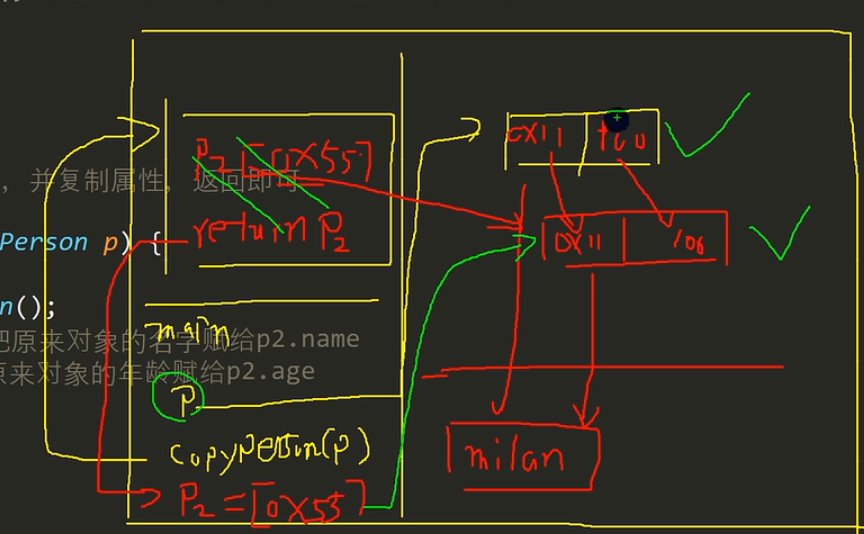 ，并复制属性，返回即可
Person p) {
n();
把原来对象的名字赋给p2.name
原来对象的年龄赋给p2.age
P2 [0X55]
return P2
main
p
copyPerson(p)
P2 = [0X55]
0X11
0X11 100
milan